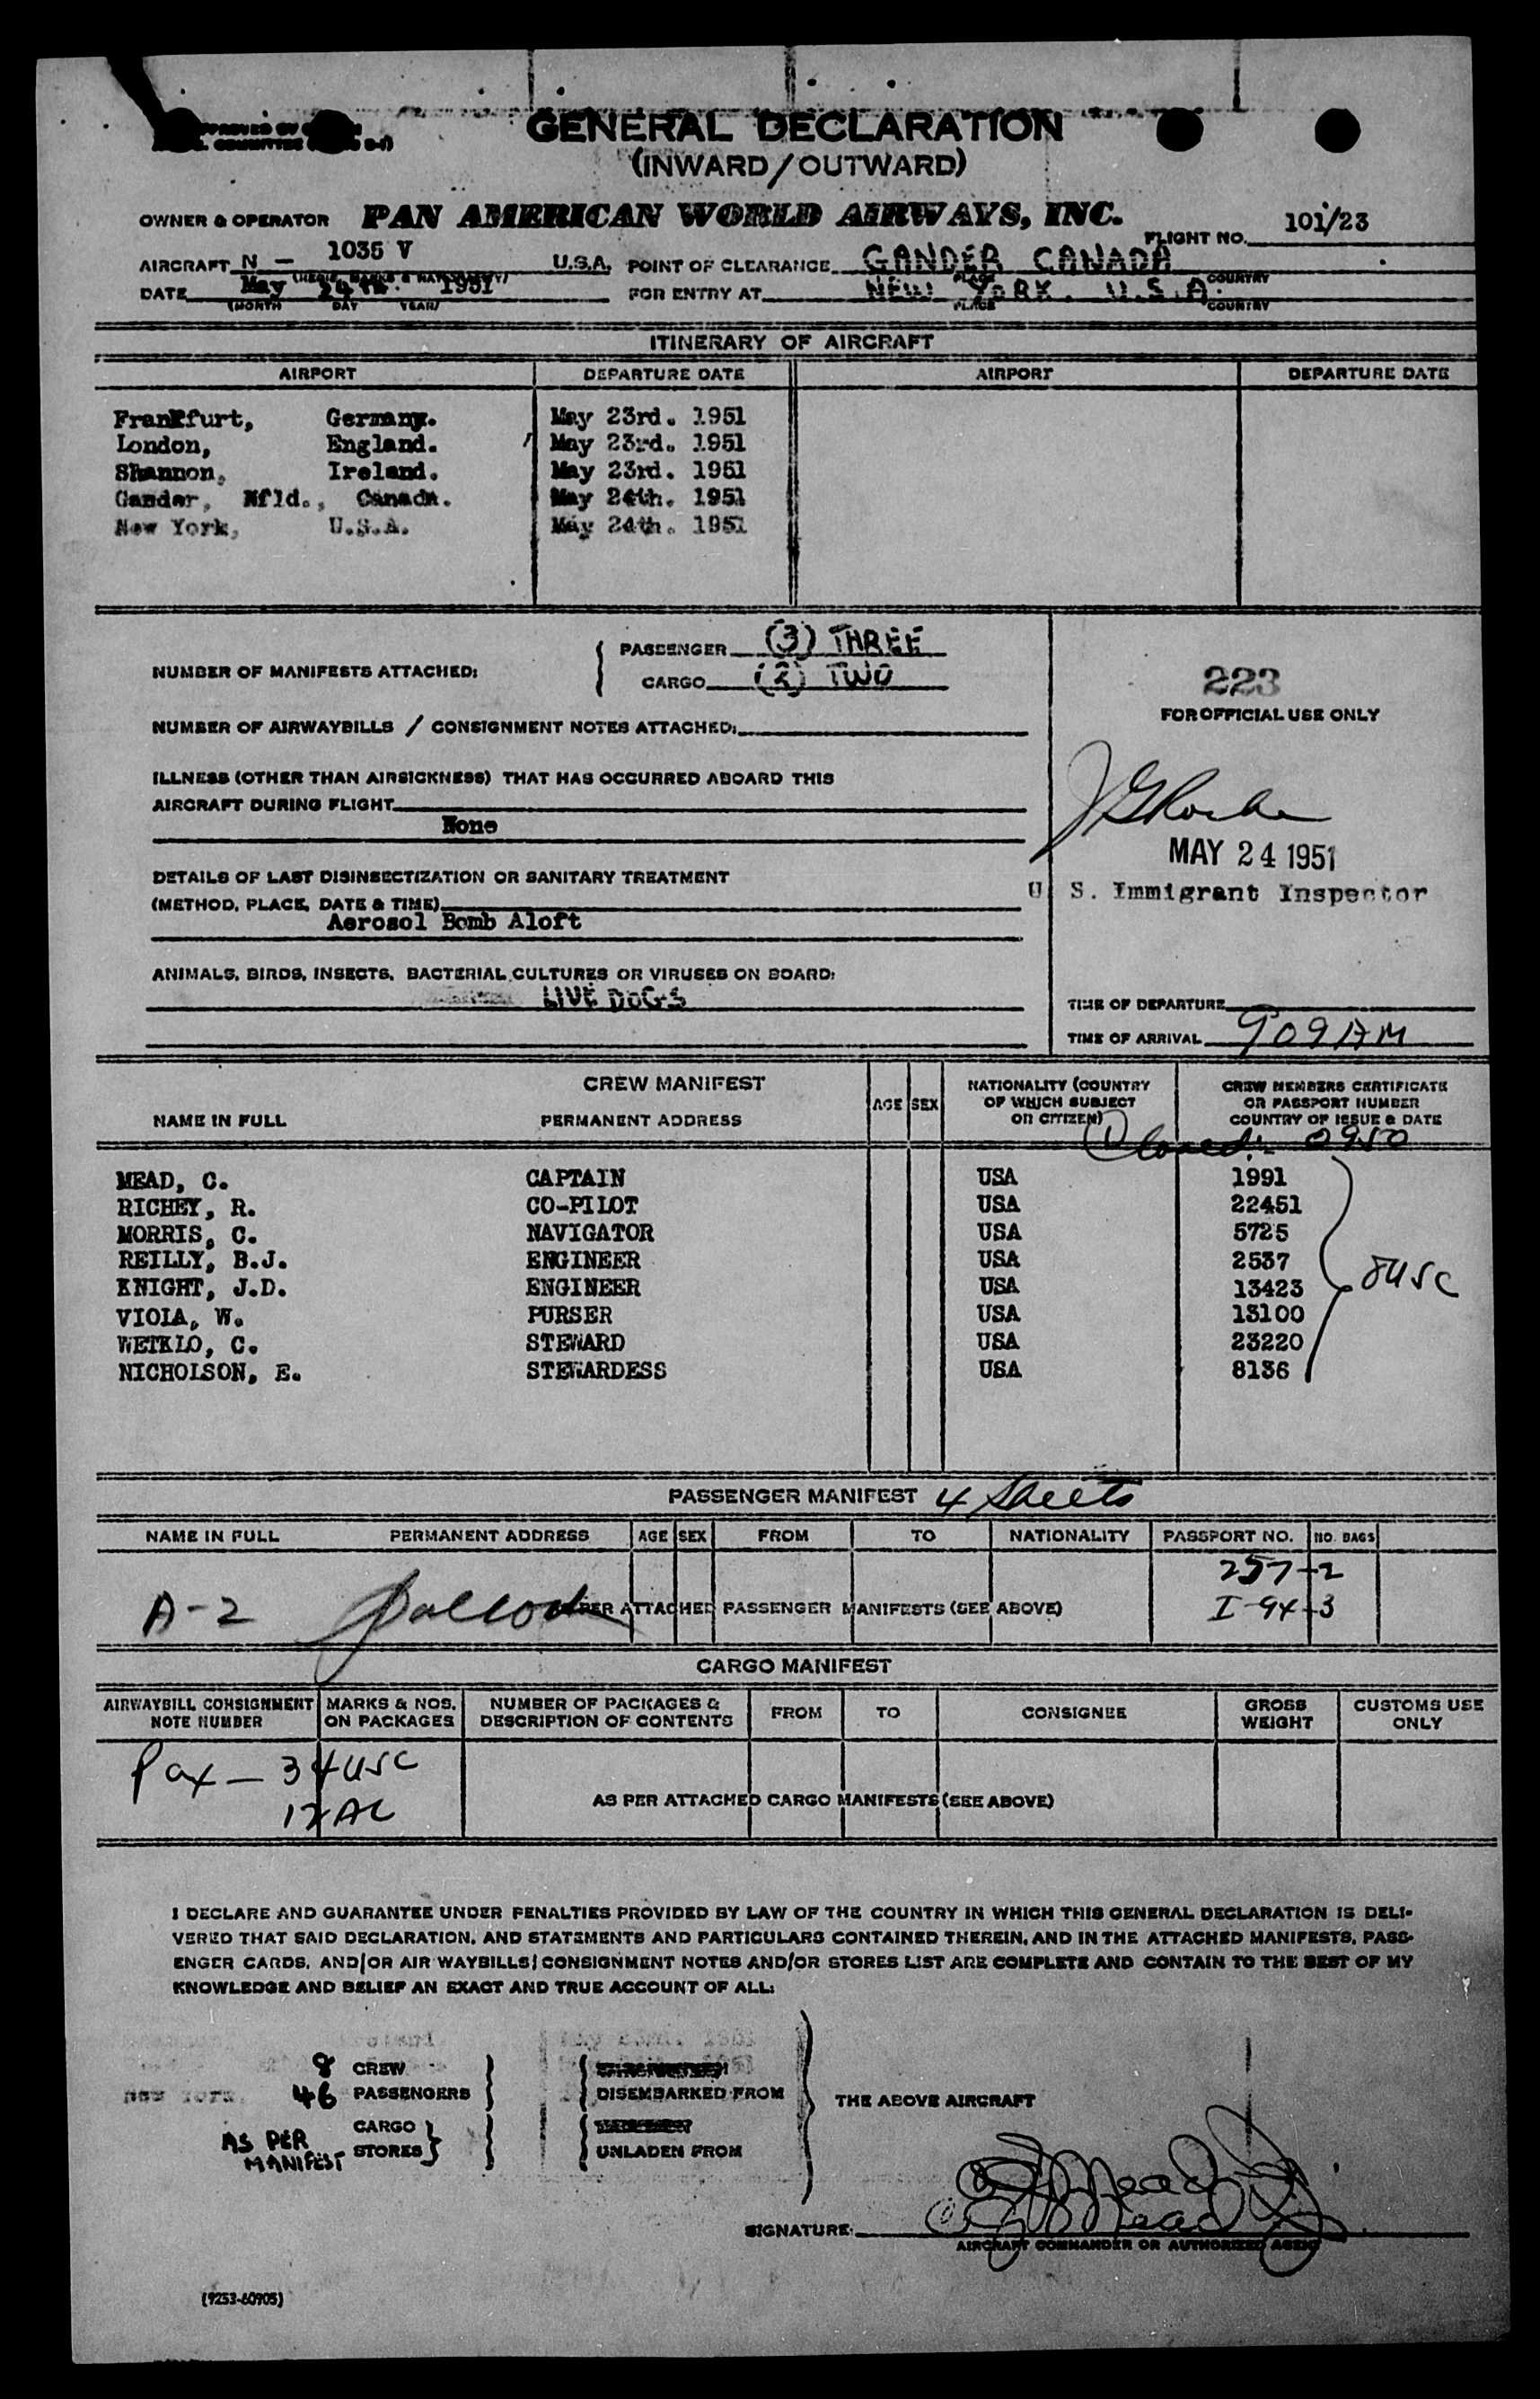 GENERAL DECLARATION
(INWARD/OUTWARD)
OWNER & OPERATOR PAN AMERICAN WORLD AIRWAYS, INC. FLIGHT NO. 101/23
AIRCRAFT N - 1035 V U.S.A. POINT OF CLEARANCE GANDER CANADA
(REGIS. MARKS & NATIONALITY) PLACE COUNTRY
DATE May 24th. 1951 FOR ENTRY AT NEW YORK. U.S.A.
(MONTH DAY YEAR) PLACE COUNTRY
ITINERARY OF AIRCRAFT
AIRPORT DEPARTURE DATE AIRPORT DEPARTURE DATE
Frankfurt, Germany. May 23rd. 1951
London, England. May 23rd. 1951
Shannon, Ireland. May 23rd. 1951
Gander, Nfld., Canada. May 24th. 1951
New York, U.S.A. May 24th. 1951
NUMBER OF MANIFESTS ATTACHED: PASSENGER (3) THREE
CARGO (2) TWO
223
FOR OFFICIAL USE ONLY
NUMBER OF AIRWAYBILLS / CONSIGNMENT NOTES ATTACHED:
ILLNESS (OTHER THAN AIRSICKNESS) THAT HAS OCCURRED ABOARD THIS
AIRCRAFT DURING FLIGHT
None
MAY 24 1951
U S. Immigrant Inspector
DETAILS OF LAST DISINSECTIZATION OR SANITARY TREATMENT
(METHOD, PLACE, DATE & TIME)
Aerosol Bomb Aloft
ANIMALS, BIRDS, INSECTS, BACTERIAL CULTURES OR VIRUSES ON BOARD:
LIVE DOGS
TIME OF DEPARTURE
TIME OF ARRIVAL 909 AM
CREW MANIFEST
NAME IN FULL PERMANENT ADDRESS AGE SEX NATIONALITY (COUNTRY OF WHICH SUBJECT OR CITIZEN) CREW MEMBERS CERTIFICATE OR PASSPORT NUMBER COUNTRY OF ISSUE & DATE
Closed: 0950
MEAD, C. CAPTAIN USA 1991
RICHEY, R. CO-PILOT USA 22451
MORRIS, C. NAVIGATOR USA 5725
REILLY, B.J. ENGINEER USA 2537
KNIGHT, J.D. ENGINEER USA 13423
8 USC
VIOLA, W. PURSER USA 13100
WETKLO, C. STEWARD USA 23220
NICHOLSON, E. STEWARDESS USA 8136
PASSENGER MANIFEST 4 Sheets
NAME IN FULL PERMANENT ADDRESS AGE SEX FROM TO NATIONALITY PASSPORT NO. NO. BAGS
257-2
A-2 PER ATTACHED PASSENGER MANIFESTS (SEE ABOVE) I-94-3
CARGO MANIFEST
AIRWAYBILL CONSIGNMENT NOTE NUMBER MARKS & NOS. ON PACKAGES NUMBER OF PACKAGES & DESCRIPTION OF CONTENTS FROM TO CONSIGNEE GROSS WEIGHT CUSTOMS USE ONLY
Pax - 34 USC
12 AL
AS PER ATTACHED CARGO MANIFESTS (SEE ABOVE)
I DECLARE AND GUARANTEE UNDER PENALTIES PROVIDED BY LAW OF THE COUNTRY IN WHICH THIS GENERAL DECLARATION IS DELI-
VERED THAT SAID DECLARATION, AND STATEMENTS AND PARTICULARS CONTAINED THEREIN, AND IN THE ATTACHED MANIFESTS, PASS-
ENGER CARDS, AND/OR AIR WAYBILLS/CONSIGNMENT NOTES AND/OR STORES LIST ARE COMPLETE AND CONTAIN TO THE BEST OF MY
KNOWLEDGE AND BELIEF AN EXACT AND TRUE ACCOUNT OF ALL:
8 CREW
46 PASSENGERS DISEMBARKED FROM THE ABOVE AIRCRAFT
New York
CARGO
AS PER MANIFEST STORES UNLADEN FROM
SIGNATURE:
AIRCRAFT COMMANDER OR AUTHORIZED AGENT
(9253-60905)